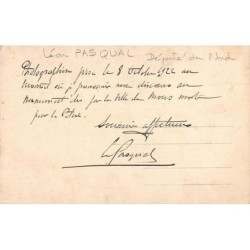 Léon PASQUAL Député du Nord
Photographie prise le 8 Octobre 1922 au
moment où je prononçais mon discours au
Monument des par la Ville de morts
pour la
Souvenir affectueux
L. Pasqual